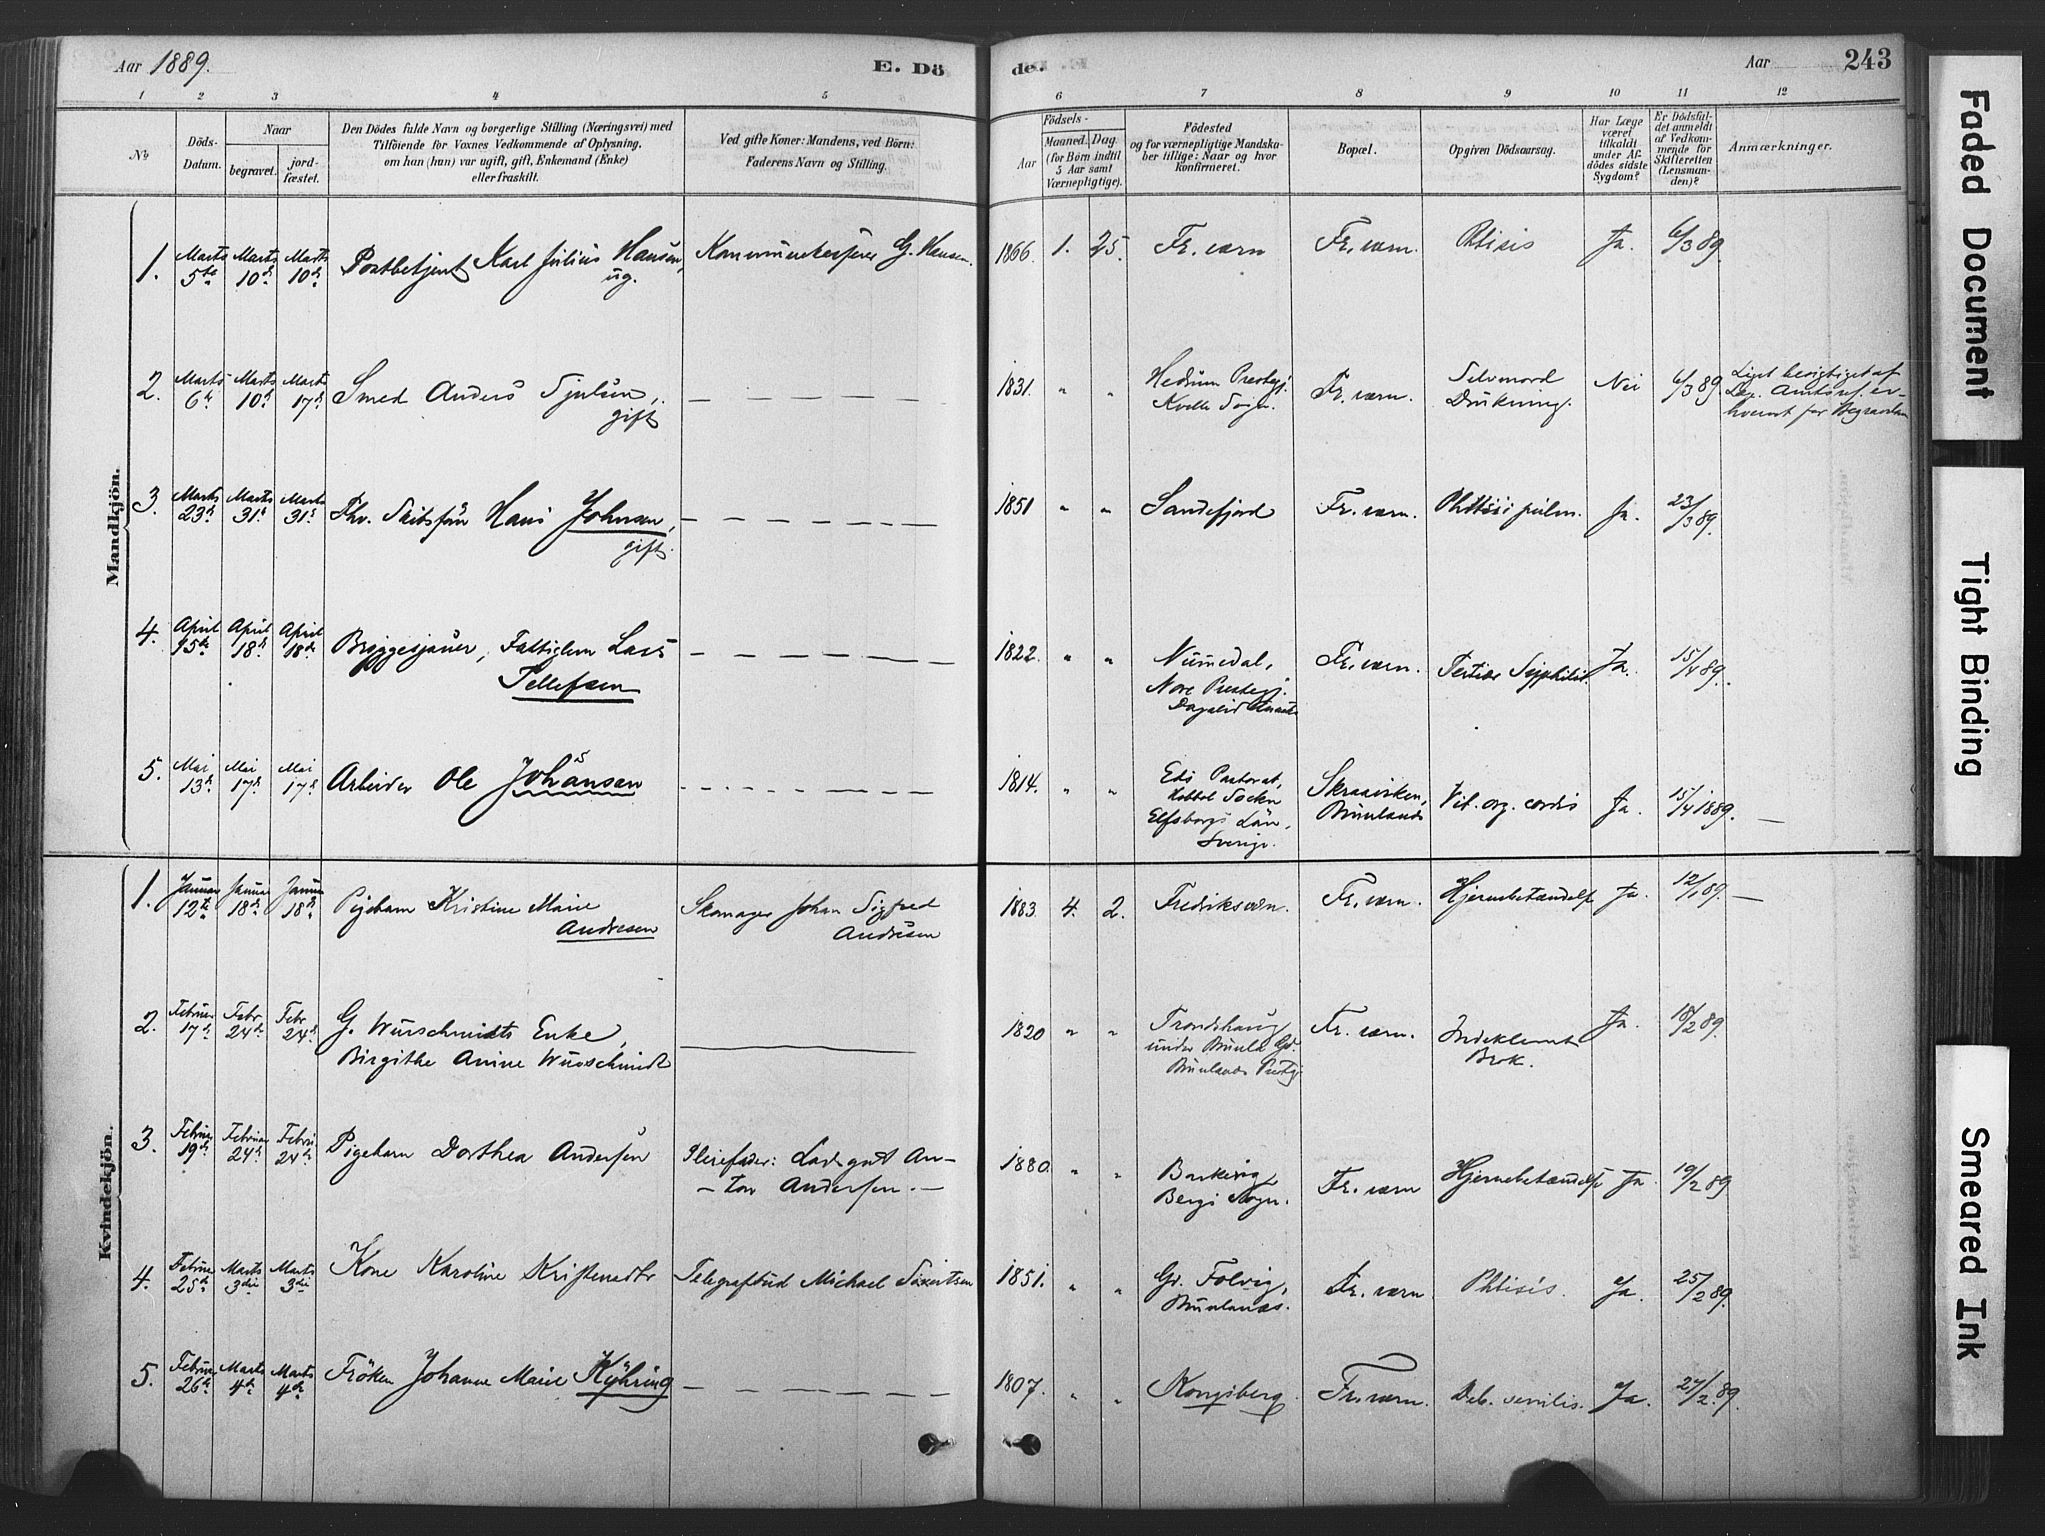 Aar 1889.
E. Dö
de.
Aar
243
1 2 3 4 5
6 7 8 9 10 11 12
No
Döds-
Datum.
Naar
begravet.
jord-
fæstet.
Den Dödes fulde Navn og borgerlige Stilling (Næringsvei) med
Tilföiende for Voxnes Vedkommende af Oplysning,
om han (hun) var ugift, gift, Enkemand (Enke)
eller fraskilt.
Ved gifte Koner: Mandens, ved Börn:
Faderens Navn og Stilling.
Födsels-
Aar
Maaned. Dag.
(for Börn indtil
5 Aar samt
Værnepligtige).
Födested
og for værnepligtige Mandska-
ber tillige: Naar og hvor
konfirmeret.
Bopæl.
Opgiven Dödsaarsag.
Har Læge
været
tilkaldt
under Af-
dödes sidste
Sygdom?
Er Dödsfal-
det anmeldt
af Vedkom-
mende for
Skifteretten
(Lensman-
den)?
Anmærkninger.
Mandkjön.
1. Marts 5te Marts 10de Marts 10de Postbetjent Karl Julius Hansen, ug. Kommunekasserer G. Hansen. 1866. 1. 25. Fr.værn Fr.værn. Phtisis Ja. 6/3 89.
2. Marts 6te Marts 10de Marts 17de Smed Anders Sjulsen, gift 1831. " " Hedrum Prestegj. Kvelle Sogn. Fr.værn. Selvmord Drukning. Nei 6/3 89. Liget besigtiget af
hvervet før Begravelsen
3. Marts 23de Marts 31te Marts 31te Skibsför Hans Johnsen, gift. 1851 " " Sandefjord Fr.værn. Phtisis pulm. Ja. 23/3 89.
4. April 15de April 18de April 18de Bryggesjauer, Fattiglem Lars Tellefsen 1822. " " Numedal, Nore Prestegj. Fr.værn. Tertiær Syphilis. Ja. 15/4 89.
5. Mai 13de Mai 17de Mai 17de Arbeider Ole Johansen 1814. " " Eds Pastorat, Elfsborgs Län, Sverige. Brunlanæs Vit. org. cordis Ja. 15/4 1889. —
Kvindekjön.
1. Januar 12te Januar 18de Januar 18de Pigebarn Kristine Marie Andresen Skomager Johan Sigfred Andresen 1883. 4. 2. Fredriksværn. Fr.værn. Hjernebetændelse Ja. 12/1 89. —
2. Februar 17de Febr. 24de Febr. 24de G. Wurschmidts Enke, Birgithe Anine Wurschmidt 1820 " " under Brunla Gd. Brunlanæs Prestgj. Fr.værn. Indeklemt Brok. Ja. 18/2 89.
3. Februar 19de Februar 24de Februar 24de Pigebarn Dorthea Andersen Pleiefader: An-
— ton Andersen. — 1880. " " Barkevig Bergs Sogn. Fr.værn Hjernebetændelse Ja. 19/2 89
4. Februar 25de Marts 3die Marts 3die Kone Karoline Kristensdtr Telegrafbud Michael Sivertsen 1851. " " Gd. Folvig, Brunlanæs. Fr.værn Phtisis. Ja. 25/2 89.
5. Februar 26de Marts 4de Marts 4de Fröken Johanne Marie Kyhring 1807. " " Kongsberg. Fr.værn. Deb. senilis. Ja. 27/2 89.
Faded Document
Tight Binding
Smeared Ink